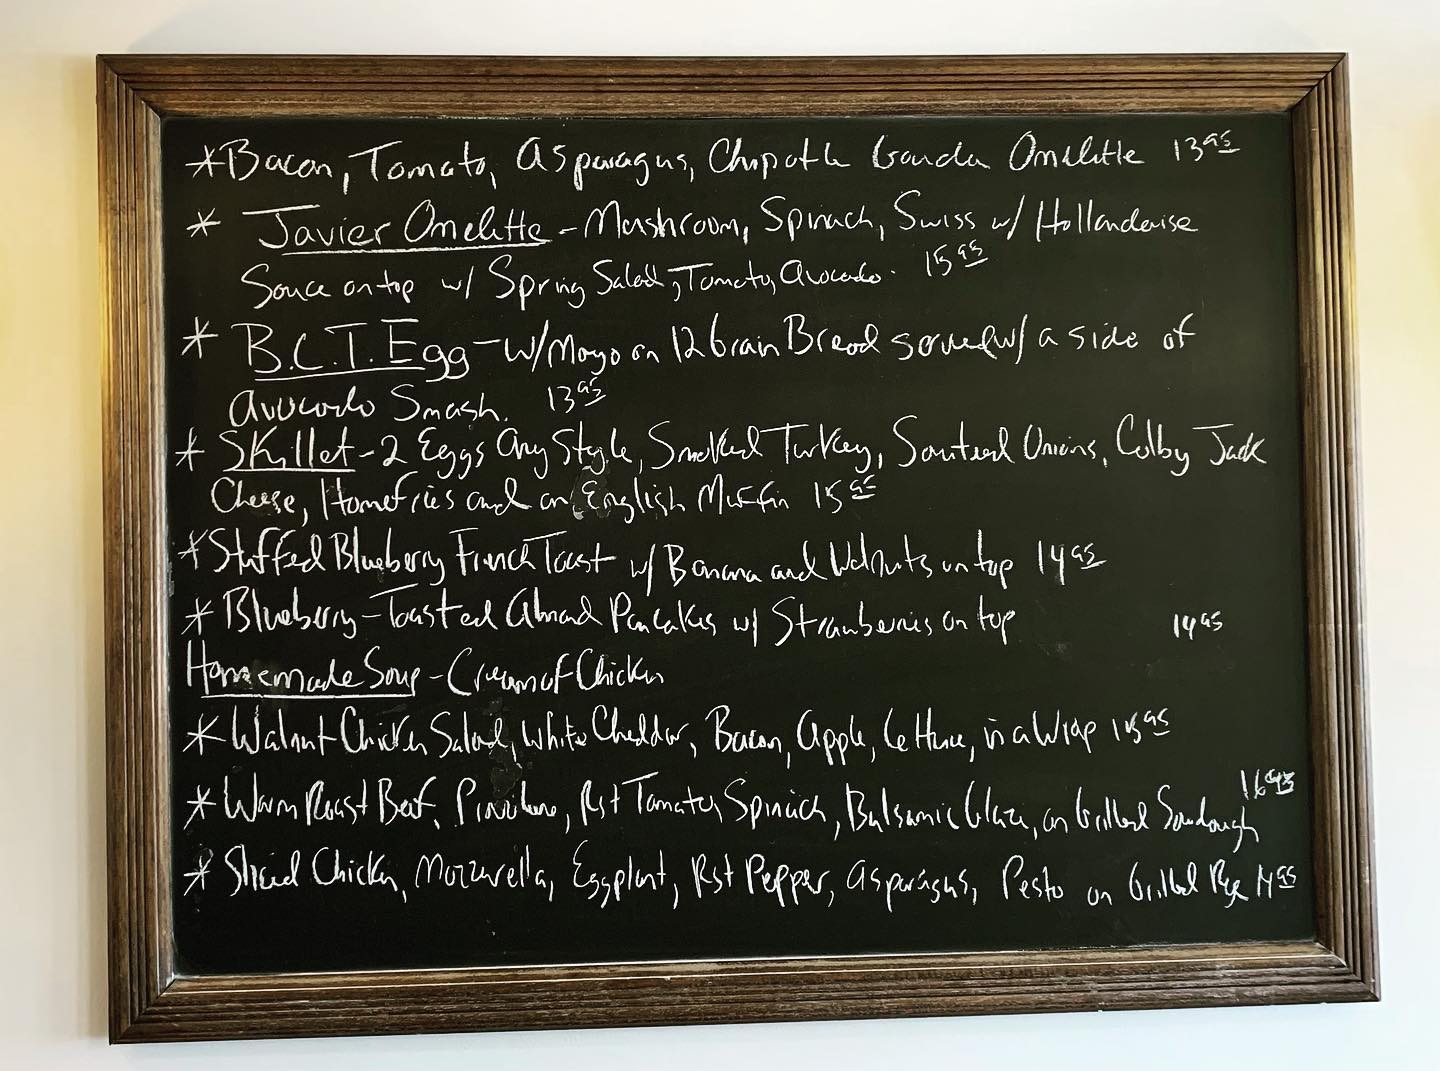 *Bacon, Tomato, Asparagus, Chipotle Gouda Omelette 13.95
* Javier Omelette - Mushroom, Spinach, Swiss w/ Hollandaise
Sauce on top w/ Spring Salad, Tomato, Avocado. 15.95
* B.C.T. Egg - w/ Mayo on 12 Grain Bread served w/ a side of
Avocado Smash. 13.95
* Skillet - 2 Eggs Any Style, Smoked Turkey, Sauteed Onions, Colby Jack
Cheese, Homefries and an English Muffin 15.95
*Stuffed Blueberry French Toast w/ Banana and Walnuts on top 14.95
* Blueberry - Toasted Almond Pancakes w/ Strawberries on top 14.95
Homemade Soup - Cream of Chicken
* Walnut Chicken Salad, White Cheddar, Bacon, Apple, Lettuce, in a Wrap 15.95
* Warm Roast Beef, Provolone, Rst Tomato, Spinach, Balsamic Glaze, on Grilled Sourdough 16.95
* Sliced Chicken, Mozzarella, Eggplant, Rst Pepper, Asparagus, Pesto on Grilled Rye 14.95